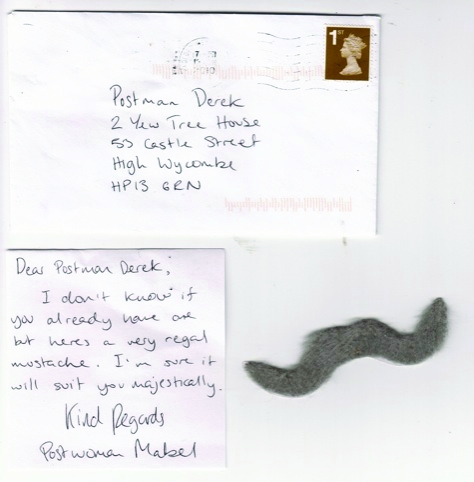 1ST
Postman Derek
2 Yew Tree House
53 Castle Street
High Wycombe
HP13 6RN
Dear Postman Derek,
I don't know if
you already have one
but heres a very regal
mustache. I'm sure it
will suit you majestically.
Kind Regards
Postwoman Mabel